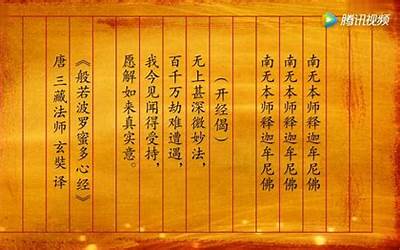 南无本师释迦牟尼佛
南无本师释迦牟尼佛
南无本师释迦牟尼佛
（开经偈）
无上甚深微妙法，
百千万劫难遭遇，
我今见闻得受持，
愿解如来真实意。
《般若波罗蜜多心经》
唐 三藏法师 玄奘 译
腾讯视频